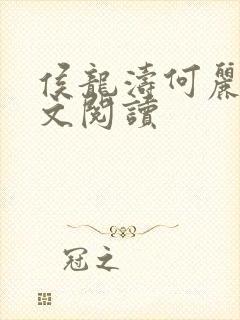 侯龍濤何麗
文閱讀
冠之